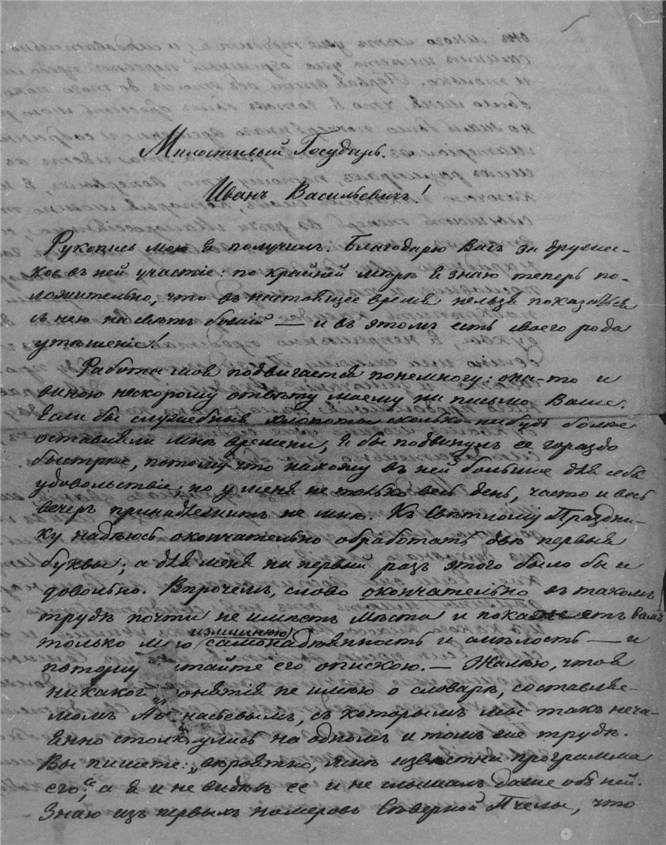 Милостивый Государь.
Иванъ Васильевичъ!
Рукопись мою я получилъ. Благодарю Васъ за дружес-
кое въ ней участіе: по крайней мѣрѣ я знаю теперь по-
ложительно, что въ настоящее время нельзя показаться
съ нею на свѣтъ божій — и въ этомъ есть своего рода
утѣшеніе!
Работа моя подвигается понемногу: она-то и
виною нескорому отвѣту моему на письмо Ваше.
Если бы служебныя хлопоты сколько нибудь болѣе
оставляли мнѣ времени, я бы подвинулъ ее гораздо
быстрѣе, потому что нахожу въ ней большое для себя
удовольствіе; но у меня не только весь день, часто и весь
вечеръ принадлежитъ не мнѣ. Къ Свѣтлому Праздни-
ку надѣюсь окончательно обработать двѣ первыя
буквы; а для меня на первый разъ этого было бы и
довольно. Впрочемъ, слово окончательно въ такомъ
трудѣ почти не имѣетъ мѣста и покажетъ Вамъ
только мою излишнюю самонадѣянность и смѣлость — и
потому считайте его опискою. — Жалѣю, что я
никакого понятія не имѣю о словарѣ, составляе-
момъ, съ которымъ мы такъ неча-
янно столкнулись на одномъ и томъ же трудѣ.
Вы пишете: „вѣроятно, мнѣ извѣстна программа
его", а я и не видѣлъ ее и не слышалъ даже объ ней.
Знаю изъ первыхъ номеровъ Сѣверной Пчелы, что